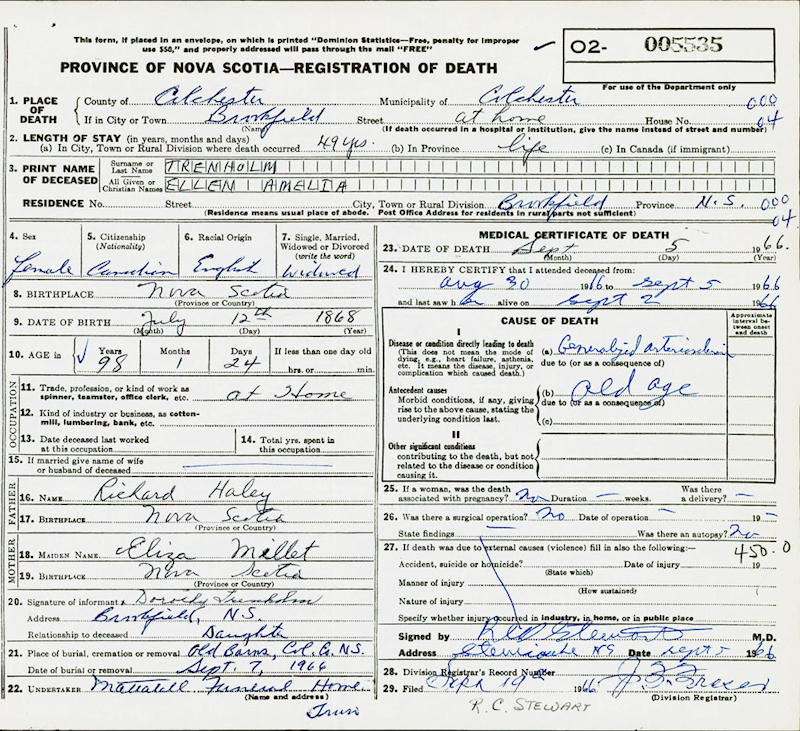 This form, if placed in an envelope, on which is printed "Dominion Statistics—Free, penalty for improper
use $50," and properly addressed will pass through the mail "FREE"
02- 005535
PROVINCE OF NOVA SCOTIA—REGISTRATION OF DEATH
For use of the Department only
1. PLACE OF DEATH County of Colchester Municipality of Colchester 000
If in City or Town Brookfield Street at home House No. 04
(Name) (If death occurred in a hospital or institution, give the name instead of street and number)
2. LENGTH OF STAY (in years, months and days)
(a) In City, Town or Rural Division where death occurred 49 yrs. (b) In Province life (c) In Canada (if immigrant)
3. PRINT NAME OF DECEASED Surname or Last Name TRENHOLM
All Given or Christian Names ELLEN AMELIA
RESIDENCE No. Street City, Town or Rural Division Brookfield Province N.S. 000
(Residence means usual place of abode. Post Office Address for residents in rural parts not sufficient) 04
4. Sex 5. Citizenship (Nationality) 6. Racial Origin 7. Single, Married, Widowed or Divorced (write the word)
female Canadian English Widowed
8. BIRTHPLACE Nova Scotia
(Province or Country)
9. DATE OF BIRTH July 12th 1868
(Month) (Day) (Year)
10. AGE in Years Months Days If less than one day old
98 1 24 hrs. or min.
OCCUPATION
11. Trade, profession, or kind of work as
spinner, teamster, office clerk, etc. at Home
12. Kind of industry or business, as cotton-
mill, lumbering, bank, etc.
13. Date deceased last worked at this occupation
14. Total yrs. spent in this occupation
15. If married give name of wife
or husband of deceased
FATHER
16. NAME Richard Haley
17. BIRTHPLACE Nova Scotia
(Province or Country)
MOTHER
18. MAIDEN NAME Eliza Millet
19. BIRTHPLACE Nova Scotia
(Province or Country)
20. Signature of informant Dorothy Trenholm
Address Brookfield, N.S.
Relationship to deceased Daughter
21. Place of burial, cremation or removal Old Barns, Col. Co. N.S.
Date of burial or removal Sept. 7, 1966
22. UNDERTAKER Mattatall Funeral Home
(Name and address)
Truro
MEDICAL CERTIFICATE OF DEATH
23. DATE OF DEATH Sept 5 1966.
(Month) (Day) (Year)
24. I HEREBY CERTIFY that I attended deceased from:
Aug 30 1966 to Sept 5 1966
and last saw h alive on Sept 2 1966
CAUSE OF DEATH
Approximate interval between onset and death
I
Disease or condition directly leading to death
(This does not mean the mode of
dying, e.g., heart failure, asthenia,
etc. It means the disease, injury, or
complication which caused death.)
(a) Generalized arteriosclerosis
due to (or as a consequence of)
Antecedent causes
Morbid conditions, if any, giving
rise to the above cause, stating the
underlying condition last.
(b) old age
due to (or as a consequence of)
(c)
II
Other significant conditions
contributing to the death, but not
related to the disease or condition
causing it.
25. If a woman, was the death Was there
associated with pregnancy? No Duration — weeks. a delivery? —
26. Was there a surgical operation? No Date of operation — 19 —
State findings — Was there an autopsy? No
27. If death was due to external causes (violence) fill in also the following:— 450.0
Accident, suicide or homicide? Date of injury 19
(State which)
Manner of injury
(How sustained)
Nature of injury
Specify whether injury occurred in industry, in home, or in public place
Signed by R C Stewart M.D.
Address Stewiacke NS Date Sept 5 1966
28. Division Registrar's Record Number
29. Filed Sept 19th 1966
(Division Registrar)
R. C. STEWART